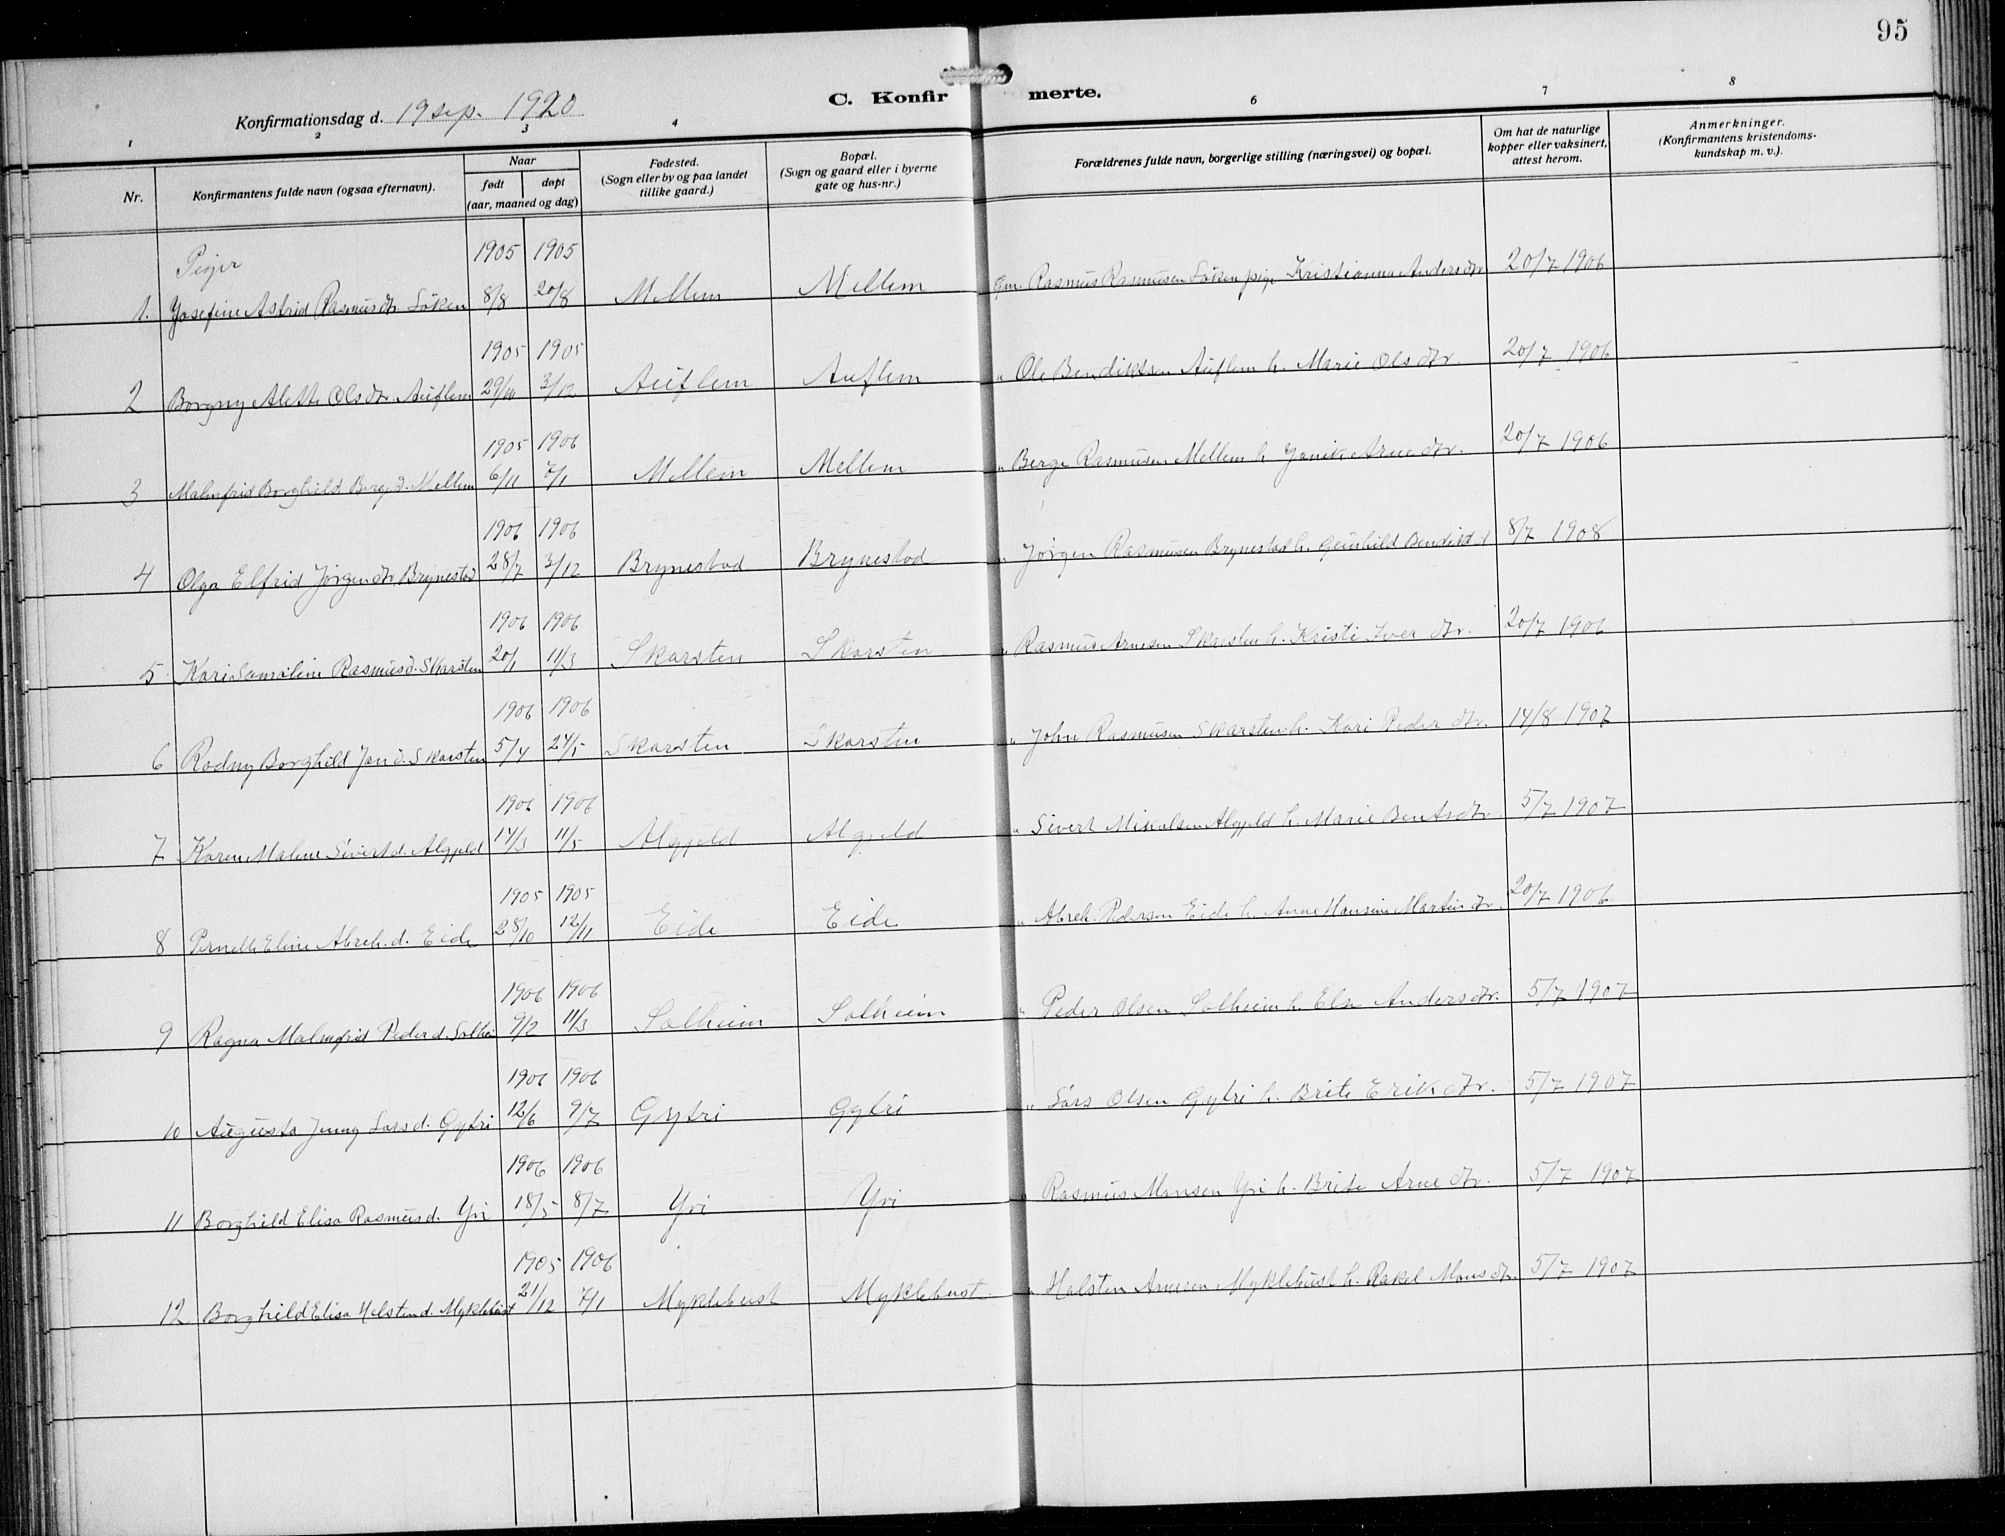 95
C. Konfirmerte.
Konfirmationsdag d. 19 sep. 1920
1 2 3 4 6 7 8
Nr.
Konfirmantens fulde navn (ogsaa efternavn).
Naar
født døpt
(aar, maaned og dag)
Fødested.
(Sogn eller by og paa landet
tillike gaard.)
Bopæl.
(Sogn og gaard eller i byerne
gate og hus-nr.)
Forældrenes fulde navn, borgerlige stilling (næringsvei) og bopæl.
Om hat de naturlige
kopper eller vaksinert,
attest herom.
Anmerkninger.
(Konfirmantens kristendoms-
kundskap m. v.).
Piger 1905 1905
1. Josefine Astrid Rasmusdtr. Löken 8/8 20/8 Mellem Mellem Gm. Rasmus Rasmusen Löken pige Kristianna Andersdtr 20/7 1906
1905 1905
2 Borgny Alette Olsdtr. Auflem 29/10 3/12 Auflem Auflem " Ole Bendiksen Auflem h. Marie Olsdtr. 20/7 1906
1905 1906
3 Malmfrid Borghild Berg.d. Mellem 6/11 7/1 Mellem Mellem " Berge Rasmusen Mellem h. Janike Arnedtr. 20/7 1906
1906 1906
4 Olga Elfrid Jørgendtr Brynestad 28/7 3/12 Brynestad Brynestad " Jørgen Rasmusen Brynestad h. Gunhild Bendikd 8/7 1908
1906 1906
5 Kari Samoline Rasmusd. Skarsten 20/1 11/3 Skarsten Skarsten " Rasmus Arnesen Skarsten h. Kristi Iverdtr. 20/7 1906
1906 1906
6 Rodny Borghild Jond. Skarsten 5/4 24/5 Skarsten Skarsten " John Rasmusen Skarsten h. Kari Pederdtr. 14/8 1907
1906 1906
7 Karen Malene Sivertd. Algjeld 14/3 11/5 Algjeld Algjeld " Sivert Mikalsen Algjeld h. Marie Bentsdtr. 5/7 1907
1905 1905
8 Pernelle Eline Abreh.d. Eide 28/10 12/11 Eide Eide " Abreh. Pedersen Eide h. Anne Hansine Martindtr. 20/7 1906
1906 1906
9 Ragna Malmfrid Pederd. Solhei 9/2 11/3 Solheim Solheim " Peder Olsen Solheim h. Else Andersdtr. 5/7 1907
1906 1906
10 Augusta Jenny Larsd. Gytri 12/6 9/7 Gytri Gytri " Lars Olsen Gytri h. Brite Erikdtr. 5/7 1907
1906 1906
11 Borghild Elisa Rasmusd. Yri 18/5 8/7 Yri Yri " Rasmus Monsen Yri h. Brite Arnedtr. 5/7 1907
1905 1906
12 Borghild Elisa Halstend. Myklebust 21/12 7/1 Myklebust Myklebust. " Halsten Arnesen Myklebust h. Rakel Monsdtr. 5/7 1907